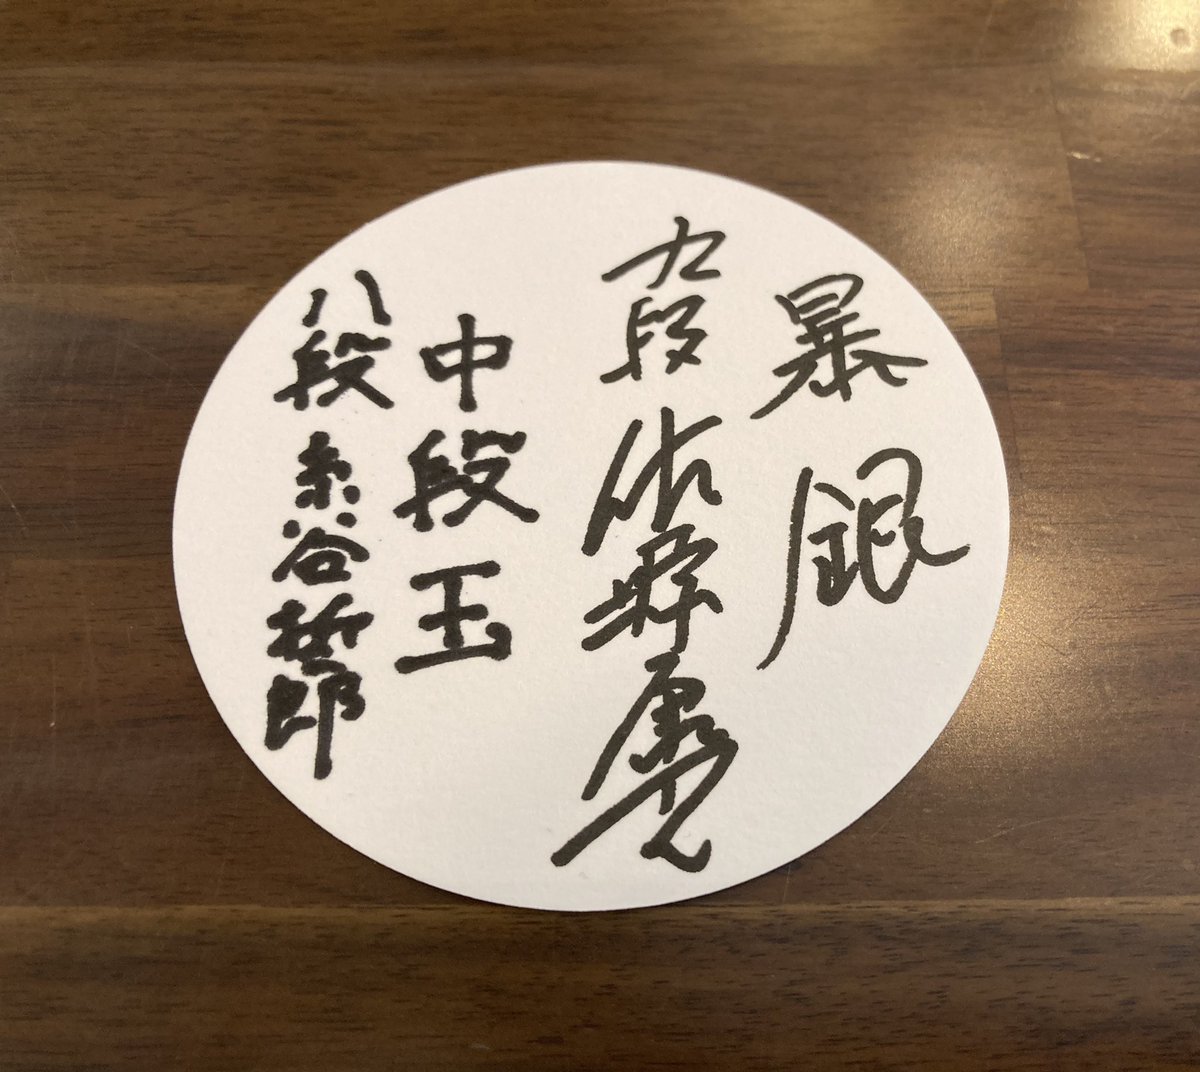 暴銀
九段 佐藤康光
中段玉
八段 糸谷哲郎